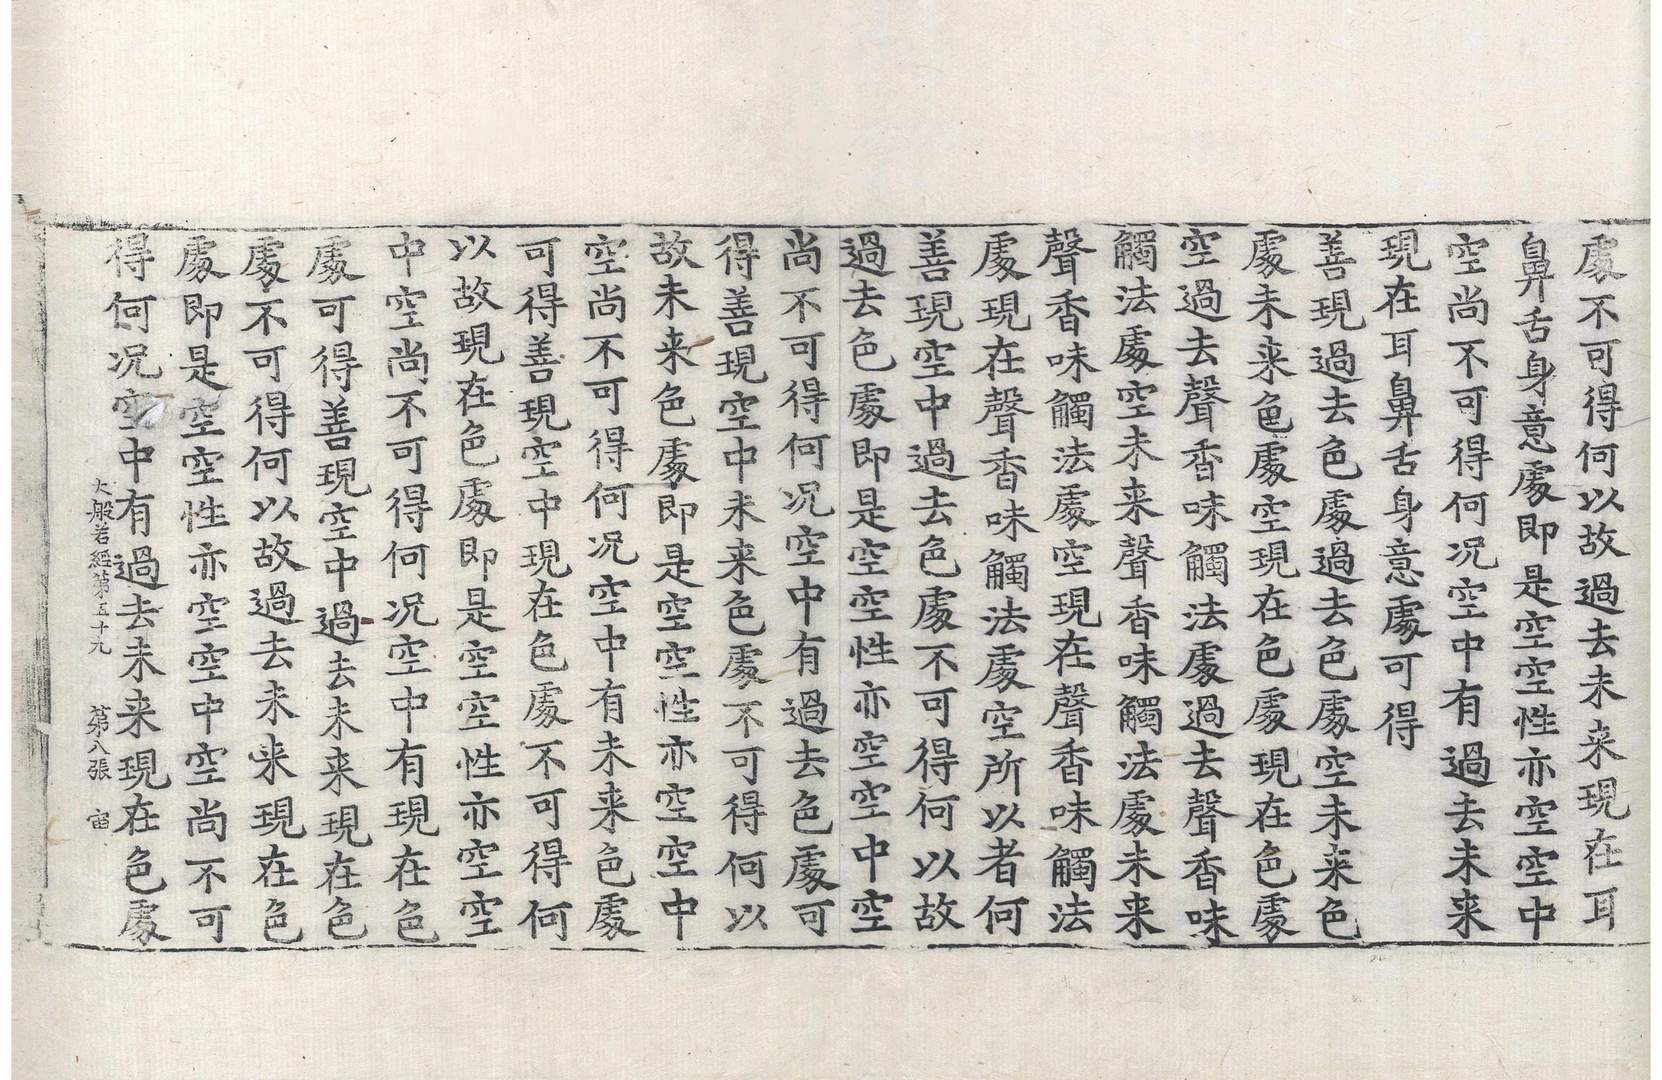 處不可得何以故過去未来現在耳
鼻舌身意處即是空空性亦空空中
空尚不可得何况空中有過去未来
現在耳鼻舌身意處可得
善現過去色處過去色處空未来色
處未来色處空現在色處現在色處
空過去聲香味觸法處過去聲香味
觸法處空未来聲香味觸法處未来
聲香味觸法處空現在聲香味觸法
處現在聲香味觸法處空所以者何
善現空中過去色處不可得何以故
過去色處即是空空性亦空空中空
尚不可得何况空中有過去色處可
得善現空中未来色處不可得何以
故未来色處即是空空性亦空空中
空尚不可得何况空中有未来色處
可得善現空中現在色處不可得何
以故現在色處即是空空性亦空空
中空尚不可得何况空中有現在色
處可得善現空中過去未来現在色
處不可得何以故過去未来現在色
處即是空空性亦空空中空尚不可
得何况空中有過去未来現在色處
大般若經第五十九 第八張 宙